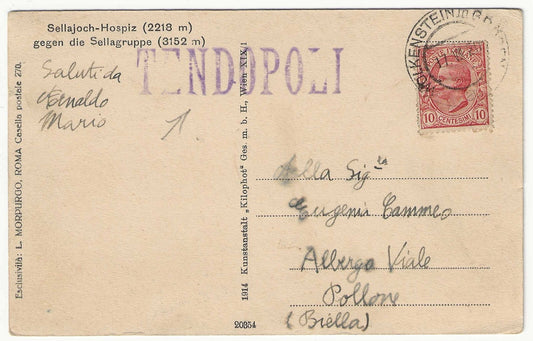 Sellajoch-Hospiz (2218 m)
gegen die Sellagruppe (3152 m)
TENDOPOLI
Saluti da
Arnaldo
Mario
Esclusività: L. MORPURGO, ROMA Casella postale 270.
1914 Kunstanstalt „Kilophot“ Ges. m. b. H., Wien XIX/1
20354
WOLKENSTEIN
10 CENTESIMI 10
Alla Sigra
Eugenia Cammeo
Albergo Viale
Pollone
(Biella)